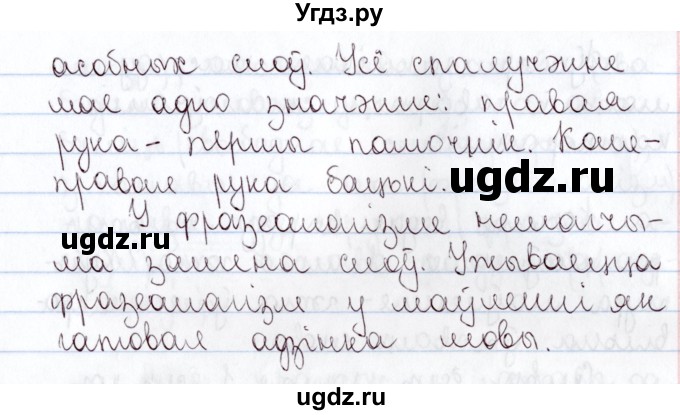 Угдз.ру
асобных слоў. Усё спалучэнне
мае адно значэнне: правая
рука – першы памочнік. Коля-
правая рука бацькі.
ugdz.ru
У фразеалагізме немагчы-
ugdz.ru
ма замена слоў. Ужываецца
фразеалагізм у маўленні як
гатовая адзінка мовы.
ugdz.ru
ugdz.ru
Угдз.ру